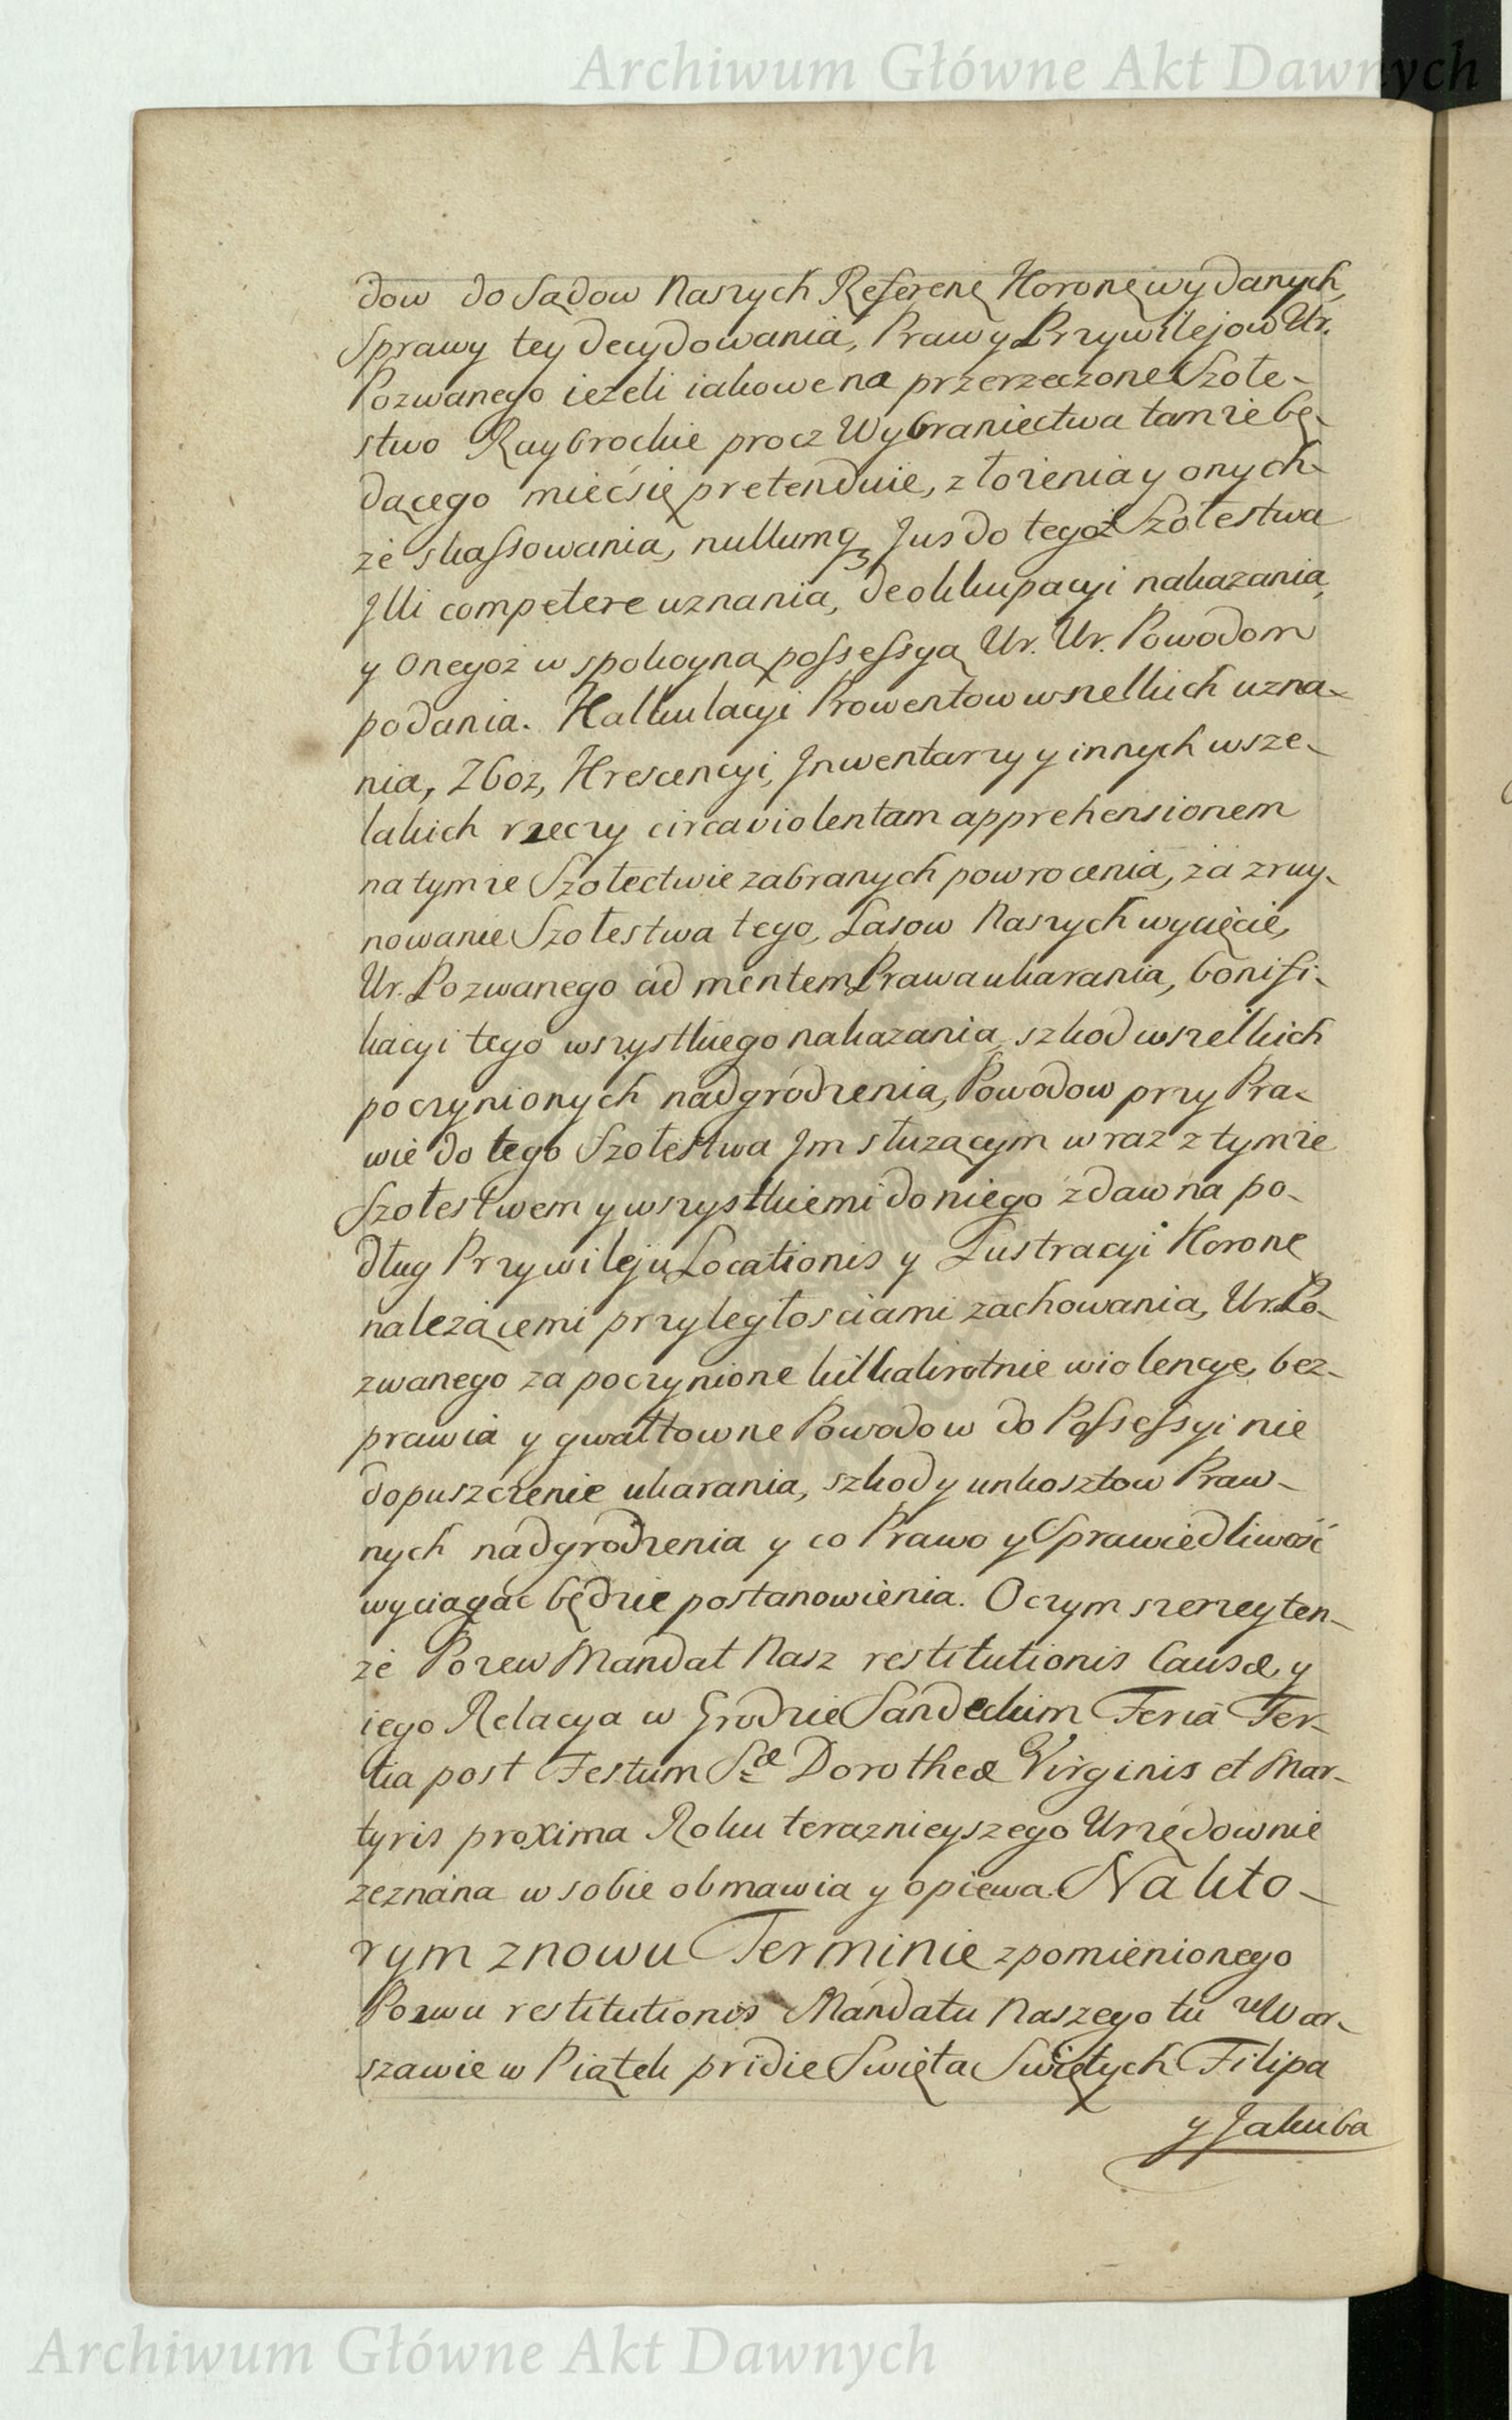 Archiwum Główne Akt Dawnych
dow do Sądow Naszych Referenę Koronę wydanych,
Sprawy tey decydowania, Praw y Przywilejow Ur.
Pozwanego ieżeli iakowe na przerzeczone Szołe-
stwo Raybrockie procz Wybraniectwa tamże bę-
dącego miećsię pretenduie, złożenia y onych-
że skassowania, nullumq Jus do tegoż Szołestwa
Jlli competere uznania, deokkupacyi nakazania,
y onegoż w spokoyną possessyą Ur. Ur. Powodom
podania. Kalkulacyi Prowentow wszelkich uzna-
nia, Zboz, Krescencyi, Jnwentarzy y innych wsze-
lakich rzeczy circa violentam apprehensionem
na tymże Szołectwie zabranych powrocenia, za zruy-
nowanie Szołestwa tego, Lasow Naszych wycięcie,
Ur. Pozwanego ad mentem Prawa ukarania, bonifi-
kacyi tego wszystkiego nakazania, szkod wszelkich
poczynionych nadgrodzenia, Powodow przy Pra-
wie do tego Szołestwa Jm służącym wraz z tymże
Szołestwem y wszystkiemi do niego zdawna po-
dług Przywileju Locationis y Lustracyi Koronę
należącemi przyległosciami zachowania, Ur. Po-
zwanego za poczynione kilkakrotnie wiolencye, bez-
prawia y gwałtowne Powodow do Possessyi nie
dopuszczenie ukarania, szkod y unkosztow Praw-
nych nadgrodzenia y co Prawo y Sprawiedliwość
wyciągać będzie postanowienia. O czym szerzey ten-
że Pozew Mandat Nasz restitutionis Causæ, y
iego Relacya w Grodzie Sandeckim Feria Ter-
tia post Festum Sæ Dorotheæ Virginis et Mar-
tyris proxima Roku teraznieyszego Urzędownie
zeznana w sobie obmawia y opiewa. Na kto-
rym znowu Terminie z pomienionego
Pozwu restitutionis Mandatu Naszego tu w War-
szawie w Piątek pridie Swięta Swiętych Filipa
y Jakuba
Archiwum Główne Akt Dawnych